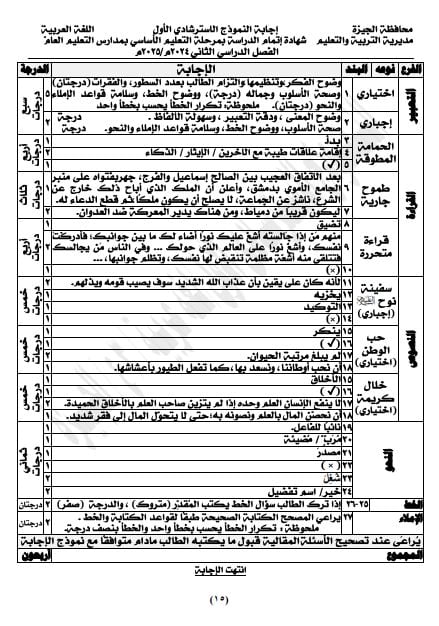 محافظة الجيزة
إجابة النموذج الاسترشادي الأول
اللغة العربية
مديرية التربية والتعليم
شهادة إتمام الدراسة بمرحلة التعليم الأساسي بمدارس التعليم العام
الفصل الدراسي الثاني ٢٠٢٤م/٢٠٢٥م
الفرع نوعه البند الإجابة الدرجة
التعبير اختياري ١ وضوح الفكر وتنظيمها والتزام الطالب بعدد السطور، والفقرات (درجتان)
صحة الأسلوب وجماله (درجة)، ووضوح الخط، وسلامة قواعد الإملاء
والنحو (درجتان). ملحوظة: تكرار الخطأ يحسب بخطأ واحد
سبع درجات
إجباري ٢ وضوح المعنى، ودقة التعبير، وسهولة الألفاظ. درجة
صحة الأسلوب، ووضوح الخط، وسلامة قواعد الإملاء والنحو. درجة ٢
القراءة الحمامة المطوقة ٣ ١ أربع درجات
٤ إقامة علاقات طيبة مع الآخرين / الإيثار / الذكاء ٢
٥ (✓) ١
طموح جارية ٦ بعد الاتفاق العجيب بين الصالح إسماعيل والفرج، جهر بفتواه على منبر
الجامع الأموي بدمشق، وأعلن أن الملك الذي أباح ذلك خارج عن
الشرع، ناشز عن الجماعة، لا يصلح أن يكون ملكًا ثم قطع الدعاء له.
٢ ثلاث درجات
٧ ليكون قريبًا من دمياط، ومن هناك يدير المعركة ضد العدوان. ١
قراءة متحررة ٨ تضيق ١ أربع درجات
٩ منهم من إذا جالسته أشع عليك نورًا أضاء لك ما بين جوانبك؛ فأدركت
نفسك، وأشع نورًا على العالم الذي حولك ... وفي الناس من يجالسك
فتتلقى منه أشعة مظلمة تنقبض لها نفسك، وتظلم جوانبها،..
٢
١٠ (×) ١
النصوص سفينة نوح ١١ لأنه كان على يقين بأن عذاب الله الشديد سوف يصيب قومه ويذلهم. ٢ خمس درجات
١٢ يخزيه ١
١٣ التوكيد ١
١٤ (×) ١
حب الوطن (اختياري) ١٥ ينكر ١ خمس درجات
١٦ (✓) ١
١٧ لم يبلغ مرتبة الحيوان. ١
١٨ أن نحب أوطاننا، ونسعد بها، كما تفعل الطيور بأعشاشها.
خلال كريمة (اختياري) ١٥ الأخلاق ١ خمس درجات
١٦ (✓) ١
١٧ لا ينفع الإنسان العلم وحده إذا لم يتزين صاحب العلم بالأخلاق الحميدة. ٢
١٨ أن نحصن المال بالعلم ونصونه به؛ حتى لا يتحول المال إلى فقر شديد. ١
النحو ١٩ نائبًا للفاعل. ١ ثماني درجات
٢٠ / مضيئة ٢
٢١ مصدر ١
٢٢ (×) ١
٢٣ شغل ١
٢٤ خبر/ اسم تفضيل ٢
الخط ٢٥-٢٦ إذا ترك الطالب سؤال الخط يكتب المقدر (متروك)، والدرجة (صفر) ٢ درجتان
الإملاء ٢٧ يراعي المصحح الكتابة الصحيحة طبقًا لقواعد الكتابة والخط.
ملحوظة: تكرار الخطأ يحسب بخطأ واحد والخطأ بنصف درجة.
٢ درجتان
يراعى عند تصحيح الأسئلة المقالية قبول ما يكتبه الطالب مادام متوافقًا مع نموذج الإجابة
المجموع أربعون
انتهت الإجابة
(١٥)